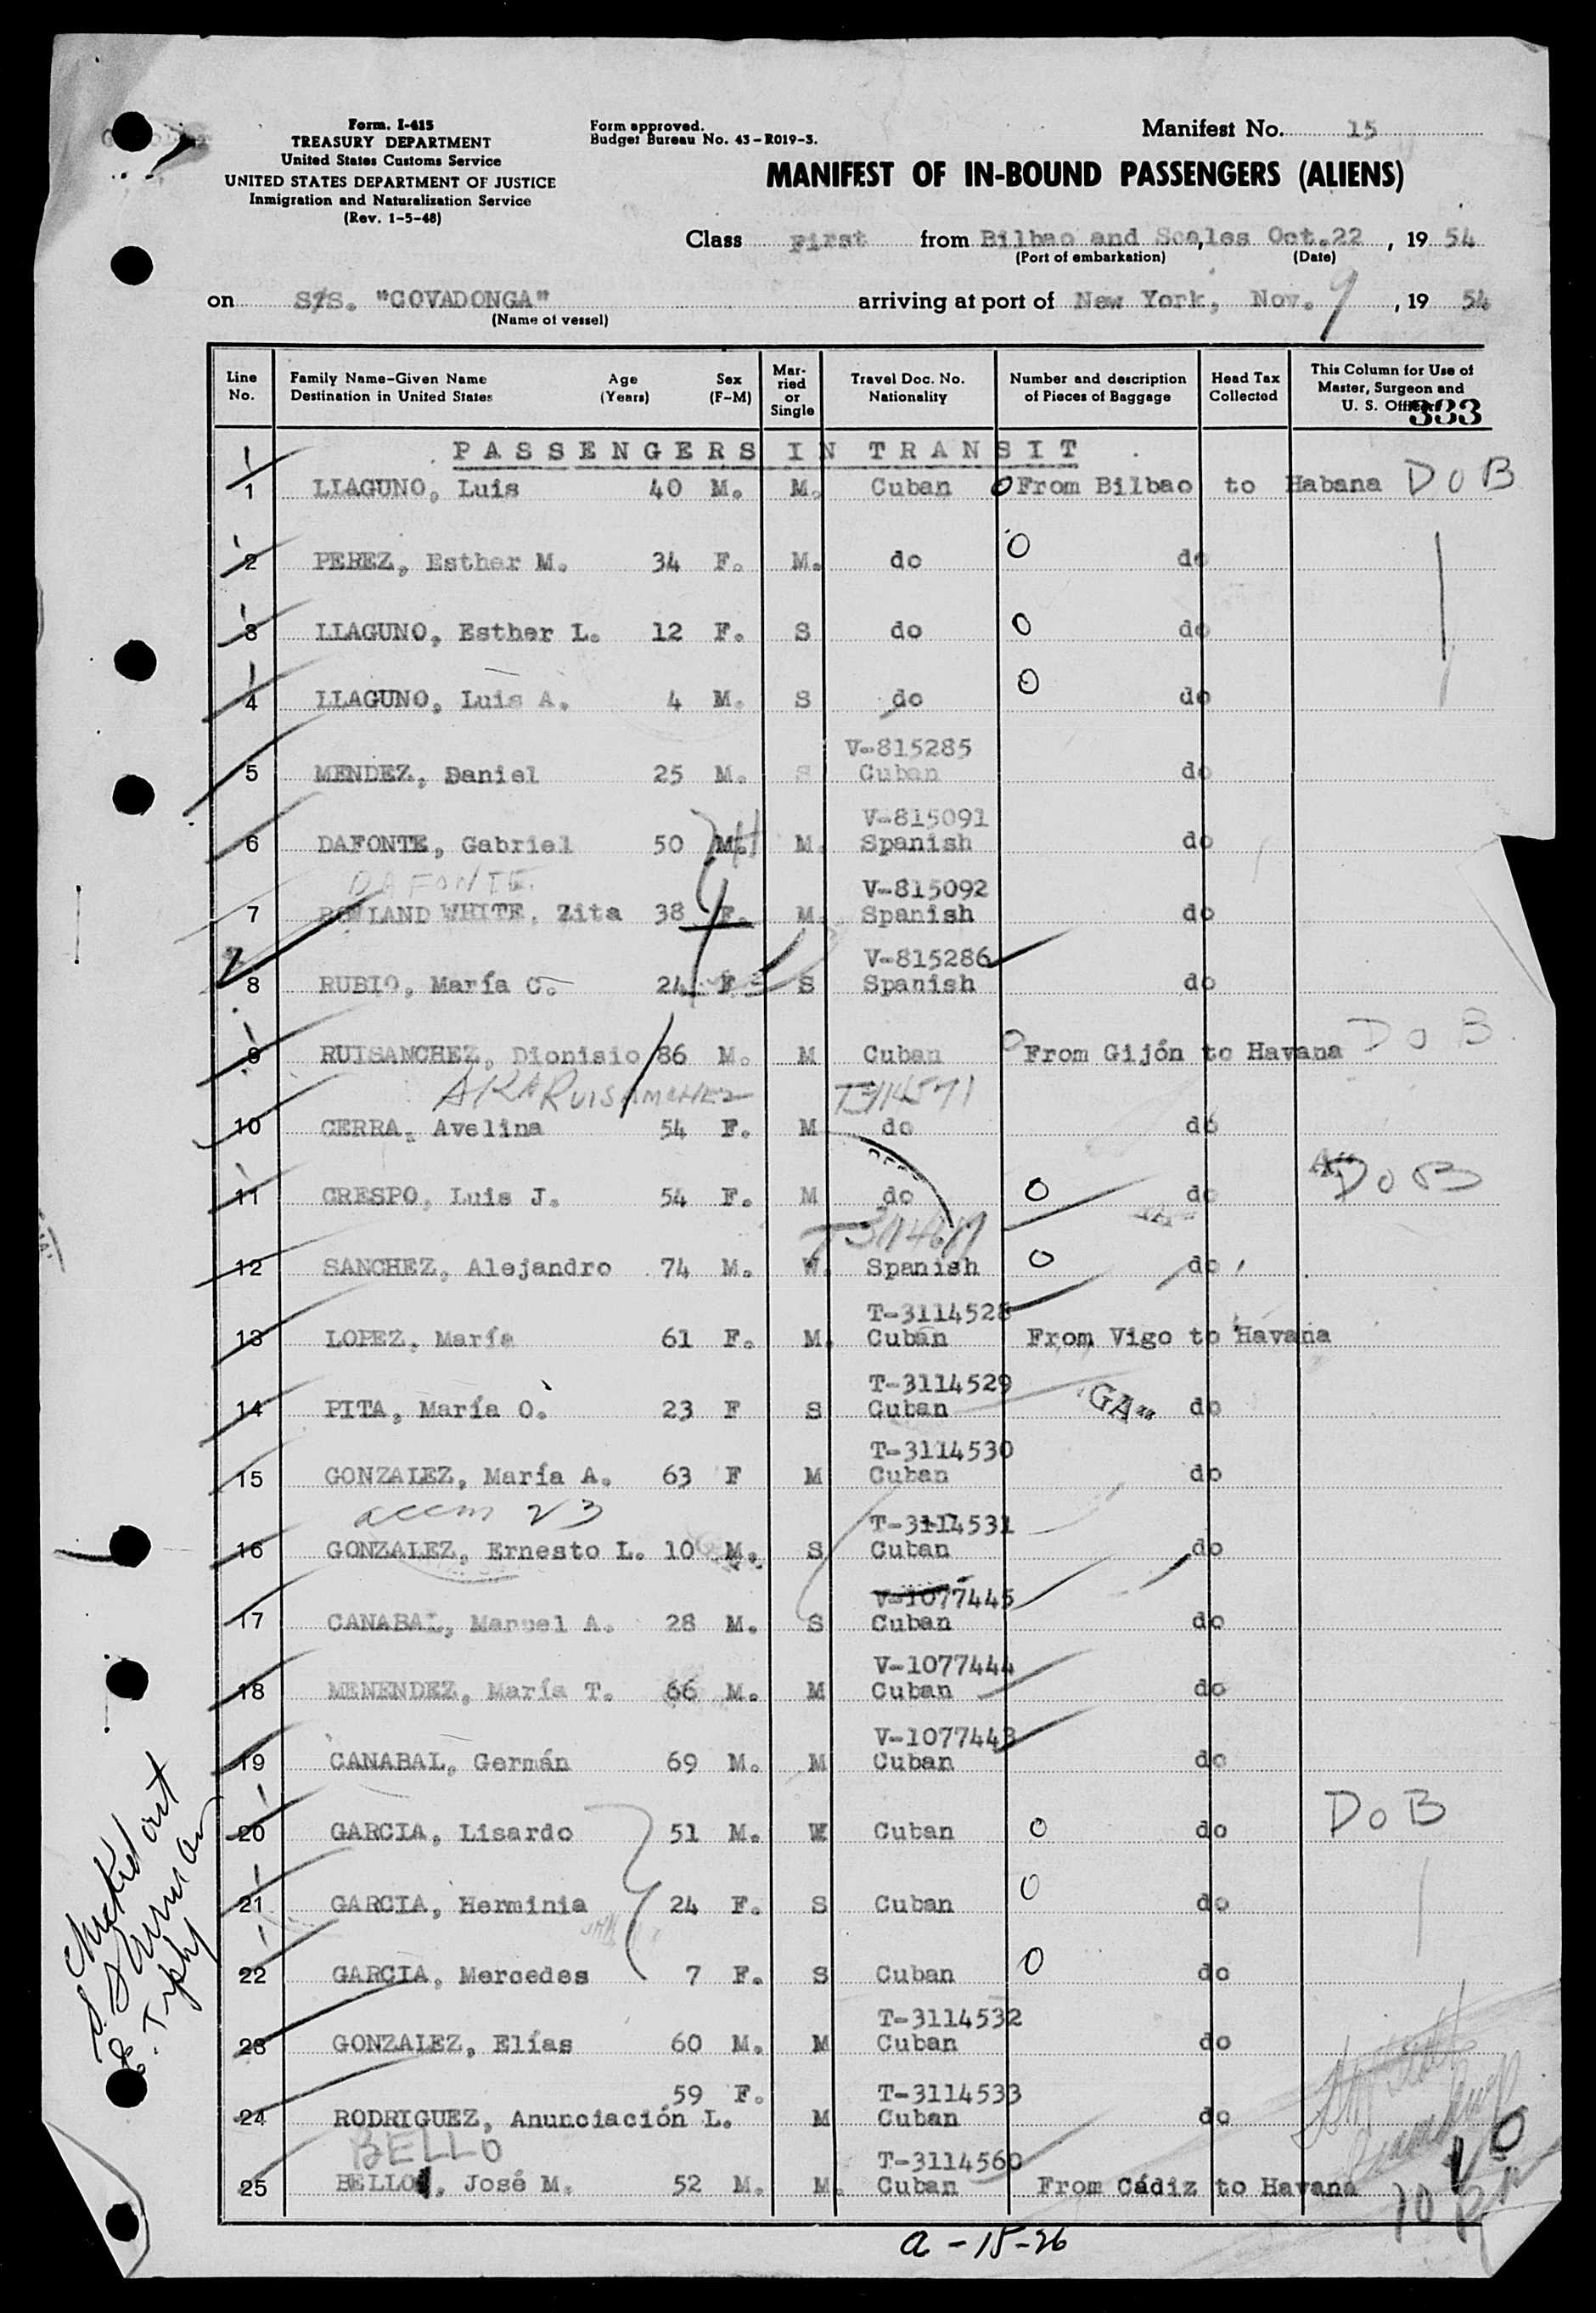 Form. I-415
TREASURY DEPARTMENT
United States Customs Service
UNITED STATES DEPARTMENT OF JUSTICE
Inmigration and Naturalization Service
(Rev. 1-5-48)
Form approved.
Budget Bureau No. 43-R019-3.
Manifest No. 15
MANIFEST OF IN-BOUND PASSENGERS (ALIENS)
Class First from Bilbao and Scales Oct.22, 19 54
(Port of embarkation) (Date)
on S/S. "COVADONGA" arriving at port of New York, Nov. 9, 19 54
(Name of vessel)
Line No. Family Name-Given Name Destination in United States Age (Years) Sex (F-M) Married or Single Travel Doc. No. Nationality Number and description of Pieces of Baggage Head Tax Collected This Column for Use of Master, Surgeon and U. S. Officers
333
PASSENGERS IN TRANSIT
1 LLAGUNO, Luis 40 M. M. Cuban O From Bilbao to Habana D O B
2 PEREZ, Esther M. 34 F. M. do O do
3 LLAGUNO, Esther L. 12 F. S do O do
4 LLAGUNO, Luis A. 4 M. S do O do
V-815285
5 MENDEZ, Daniel 25 M. S Cuban do
V-815091
6 DAFONTE, Gabriel 50 M. M. Spanish do
DAFONTE. V-815092
7 ROWLAND WHITE, Zita 38 F. M. Spanish do
V-815286
8 RUBIO, María C. 24 F S Spanish do
9 RUISANCHEZ, Dionisio 86 M. M Cuban O From Gijón to Havana D O B
AKA RUISANCHEZ
10 CERRA, Avelina 54 F. M do do
11 CRESPO, Luis J. 54 F. M do O do D O B
12 SANCHEZ, Alejandro 74 M. W. Spanish O do
T-3114528
13 LOPEZ, María 61 F. M. Cuban From Vigo to Havana
T-3114529
14 PITA, María O. 23 F S Cuban GA" do
T-3114530
15 GONZALEZ, María A. 63 F M Cuban do
accm 23 T-3114531
16 GONZALEZ, Ernesto L. 10 M. S Cuban do
V-1077445
17 CANABAL, Manuel A. 28 M. S Cuban do
V-1077444
18 MENENDEZ, María T. 66 M. M Cuban do
V-1077443
19 CANABAL, Germán 69 M. M Cuban do
20 GARCIA, Lisardo 51 M. W Cuban O do D O B
21 GARCIA, Herminia 24 F. S Cuban O do
22 GARCIA, Mercedes 7 F. S Cuban O do
T-3114532
23 GONZALEZ, Elías 60 M. M Cuban do
59 F. T-3114533
24 RODRIGUEZ, Anunciación L. M Cuban do
BELLO T-3114560
25 BELLO, José M. 52 M. M. Cuban From Cádiz to Havana
a - 15-26
Checked out